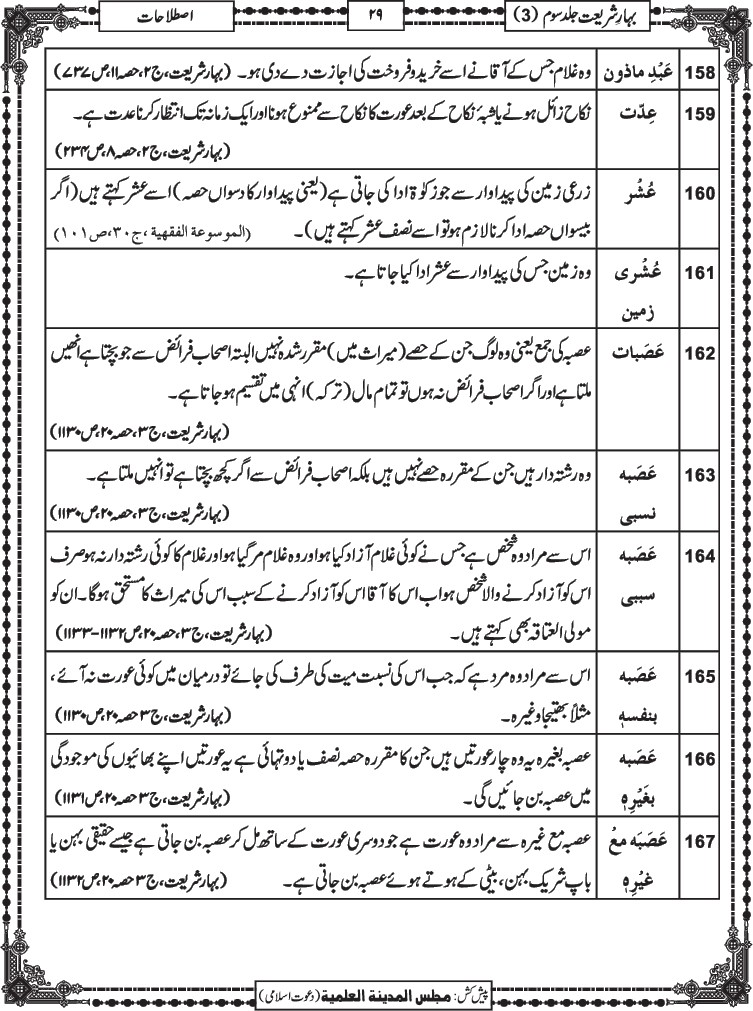 بہارِ شریعت جلد سوم (3) ۲۹ اصطلاحات
158 عَبْدِ ماذون وہ غلام جس کے آقا نے اسے خرید و فروخت کی اجازت دے دی ہو۔ (بہارِ شریعت، ج۲، حصہ۱۱، ص۷۳۷)
159 عِدّت نکاح زائل ہونے یا شبۂ نکاح کے بعد عورت کا نکاح سے ممنوع ہونا اور ایک زمانہ تک انتظار کرنا عدت ہے۔
(بہارِ شریعت، ج۲، حصہ۸، ص۲۳۴)
160 عُشْر زرعی زمین کی پیداوار سے جو زکوٰۃ ادا کی جاتی ہے (یعنی پیداوار کا دسواں حصہ) اسے عشر کہتے ہیں (اگر
بیسواں حصہ ادا کرنا لازم ہو تو اسے نصف عشر کہتے ہیں)۔ (الموسوعة الفقهية، ج۳۰، ص۱۰۱)
161 عُشْری وہ زمین جس کی پیداوار سے عشر ادا کیا جاتا ہے۔
زمین
162 عَصَبات عصبہ کی جمع یعنی وہ لوگ جن کے حصے (میراث میں) مقرر شدہ نہیں البتہ اصحاب فرائض سے جو بچتا ہے انھیں
ملتا ہے اور اگر اصحاب فرائض نہ ہوں تو تمام مال (ترکہ) انہی میں تقسیم ہو جاتا ہے۔
(بہارِ شریعت، ج۳، حصہ۲۰، ص۱۱۳۰)
163 عَصَبه وہ رشتہ دار ہیں جن کے مقررہ حصے نہیں ہیں بلکہ اصحاب فرائض سے اگر کچھ بچتا ہے تو انہیں ملتا ہے۔
نسبی (بہارِ شریعت، ج۳، حصہ۲۰، ص۱۱۳۰)
164 عَصَبه اس سے مراد وہ شخص ہے جس نے کوئی غلام آزاد کیا ہو اور وہ غلام مر گیا ہو اور غلام کا کوئی رشتہ دار نہ ہو صرف
سببی اس کو آزاد کرنے والا شخص ہو اب اس کا آقا اس کو آزاد کرنے کے سبب اس کی میراث کا مستحق ہوگا۔ ان کو
مولی العتاقہ بھی کہتے ہیں۔ (بہارِ شریعت، ج۳، حصہ۲۰، ص۱۱۳۲–۱۱۳۳)
165 عَصَبه اس سے مراد وہ مرد ہے کہ جب اس کی نسبت میت کی طرف کی جائے تو درمیان میں کوئی عورت نہ آئے،
بنفسهٖ مثلاً بھتیجا وغیرہ۔ (بہارِ شریعت، ج۳ حصہ۲۰، ص۱۱۳۰)
166 عَصَبه عصبہ بغیرہ یہ وہ چار عورتیں ہیں جن کا مقررہ حصہ نصف یا دو تہائی ہے یہ عورتیں اپنے بھائیوں کی موجودگی
بغَيْرِهٖ میں عصبہ بن جائیں گی۔ (بہارِ شریعت، ج۳ حصہ۲۰، ص۱۱۳۱)
167 عَصَبَه معْ عصبہ مع غیرہ سے مراد وہ عورت ہے جو دوسری عورت کے ساتھ مل کر عصبہ بن جاتی ہے جیسے حقیقی بہن یا
غيْرِهٖ باپ شریک بہن، بیٹی کے ہوتے ہوئے عصبہ بن جاتی ہے۔ (بہارِ شریعت، ج۳ حصہ۲۰، ص۱۱۳۲)
پیش کش: مجلس المدينة العلمية (دعوتِ اسلامی)